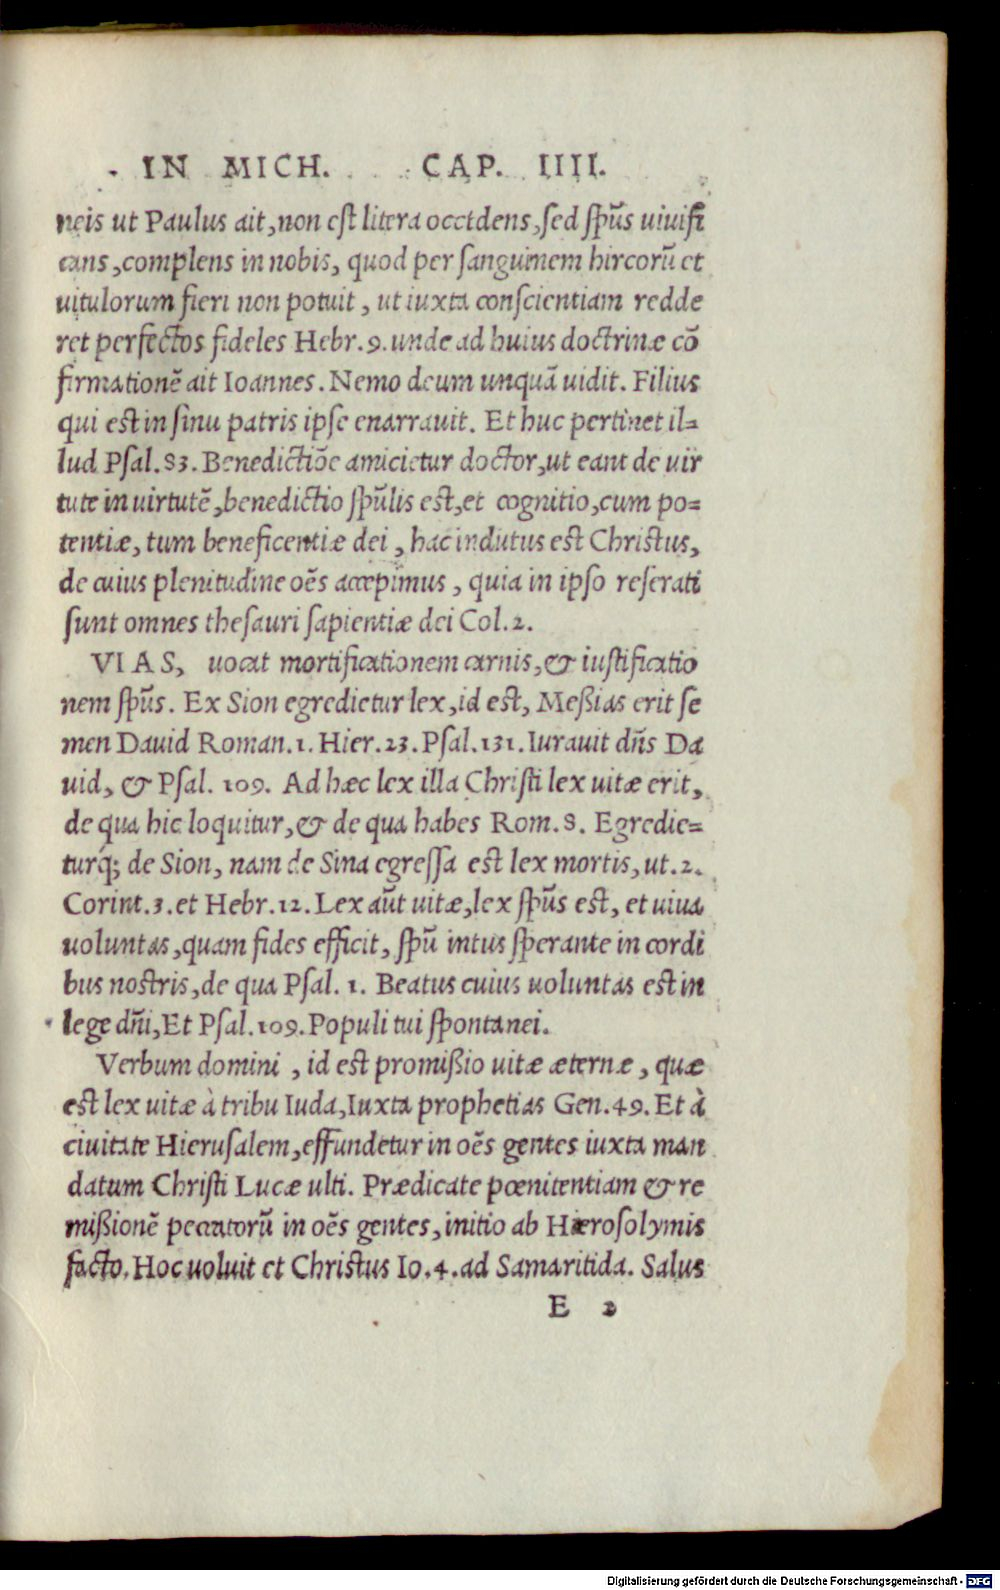 IN MICH. CAP. IIII.
neis ut Paulus ait, non est litera occidens, sed spũs uiuifi
cans, complens in nobis, quod per sanguinem hircorũ et
uitulorum fieri non potuit, ut iuxta conscientiam redde
ret perfectos fideles Hebr. 9. unde ad huius doctrinæ cõ
firmationẽ ait Ioannes. Nemo deum unquã uidit. Filius
qui est in sinu patris ipse enarrauit. Et huc pertinet il=
lud Psal. 83. Benedictiõe amicietur doctor, ut eant de uir
tute in uirtutẽ, benedictio spũlis est, et cognitio, cum po=
tentiæ, tum beneficentiæ dei, hac indutus est Christus,
de cuius plenitudine oẽs accepimus, quia in ipso reserati
sunt omnes thesauri sapientiæ dei Col. 2.
VIAS, uocat mortificationem carnis, & iustificatio
nem spũs. Ex Sion egredietur lex, id est, Meßias erit se
men Dauid Roman. 1. Hier. 23. Psal. 131. Iurauit dñs Da
uid, & Psal. 109. Ad hæc lex illa Christi lex uitæ erit,
de qua hic loquitur, & de qua habes Rom. 8. Egredie=
turq́; de Sion, nam de Sina egressa est lex mortis, ut. 2.
Corint. 3. et Hebr. 12. Lex aũt uitæ, lex spũs est, et uiua
uoluntas, quam fides efficit, spũ intus sperante in cordi
bus nostris, de qua Psal. 1. Beatus cuius uoluntas est in
lege dñi, Et Psal. 109. Populi tui spontanei.
Verbum domini, id est promißio uitæ æternæ, quæ
est lex uitæ à tribu Iuda, Iuxta prophetias Gen. 49. Et à
ciuitate Hierusalem, effundetur in oẽs gentes iuxta man
datum Christi Lucæ ulti. Prædicate pœnitentiam & re
mißionẽ peccatorũ in oẽs gentes, initio ab Hierosolymis
facto. Hoc uoluit et Christus Io. 4. ad Samaritida. Salus
E 2
Digitalisierung gefördert durch die Deutsche Forschungsgemeinschaft - DFG